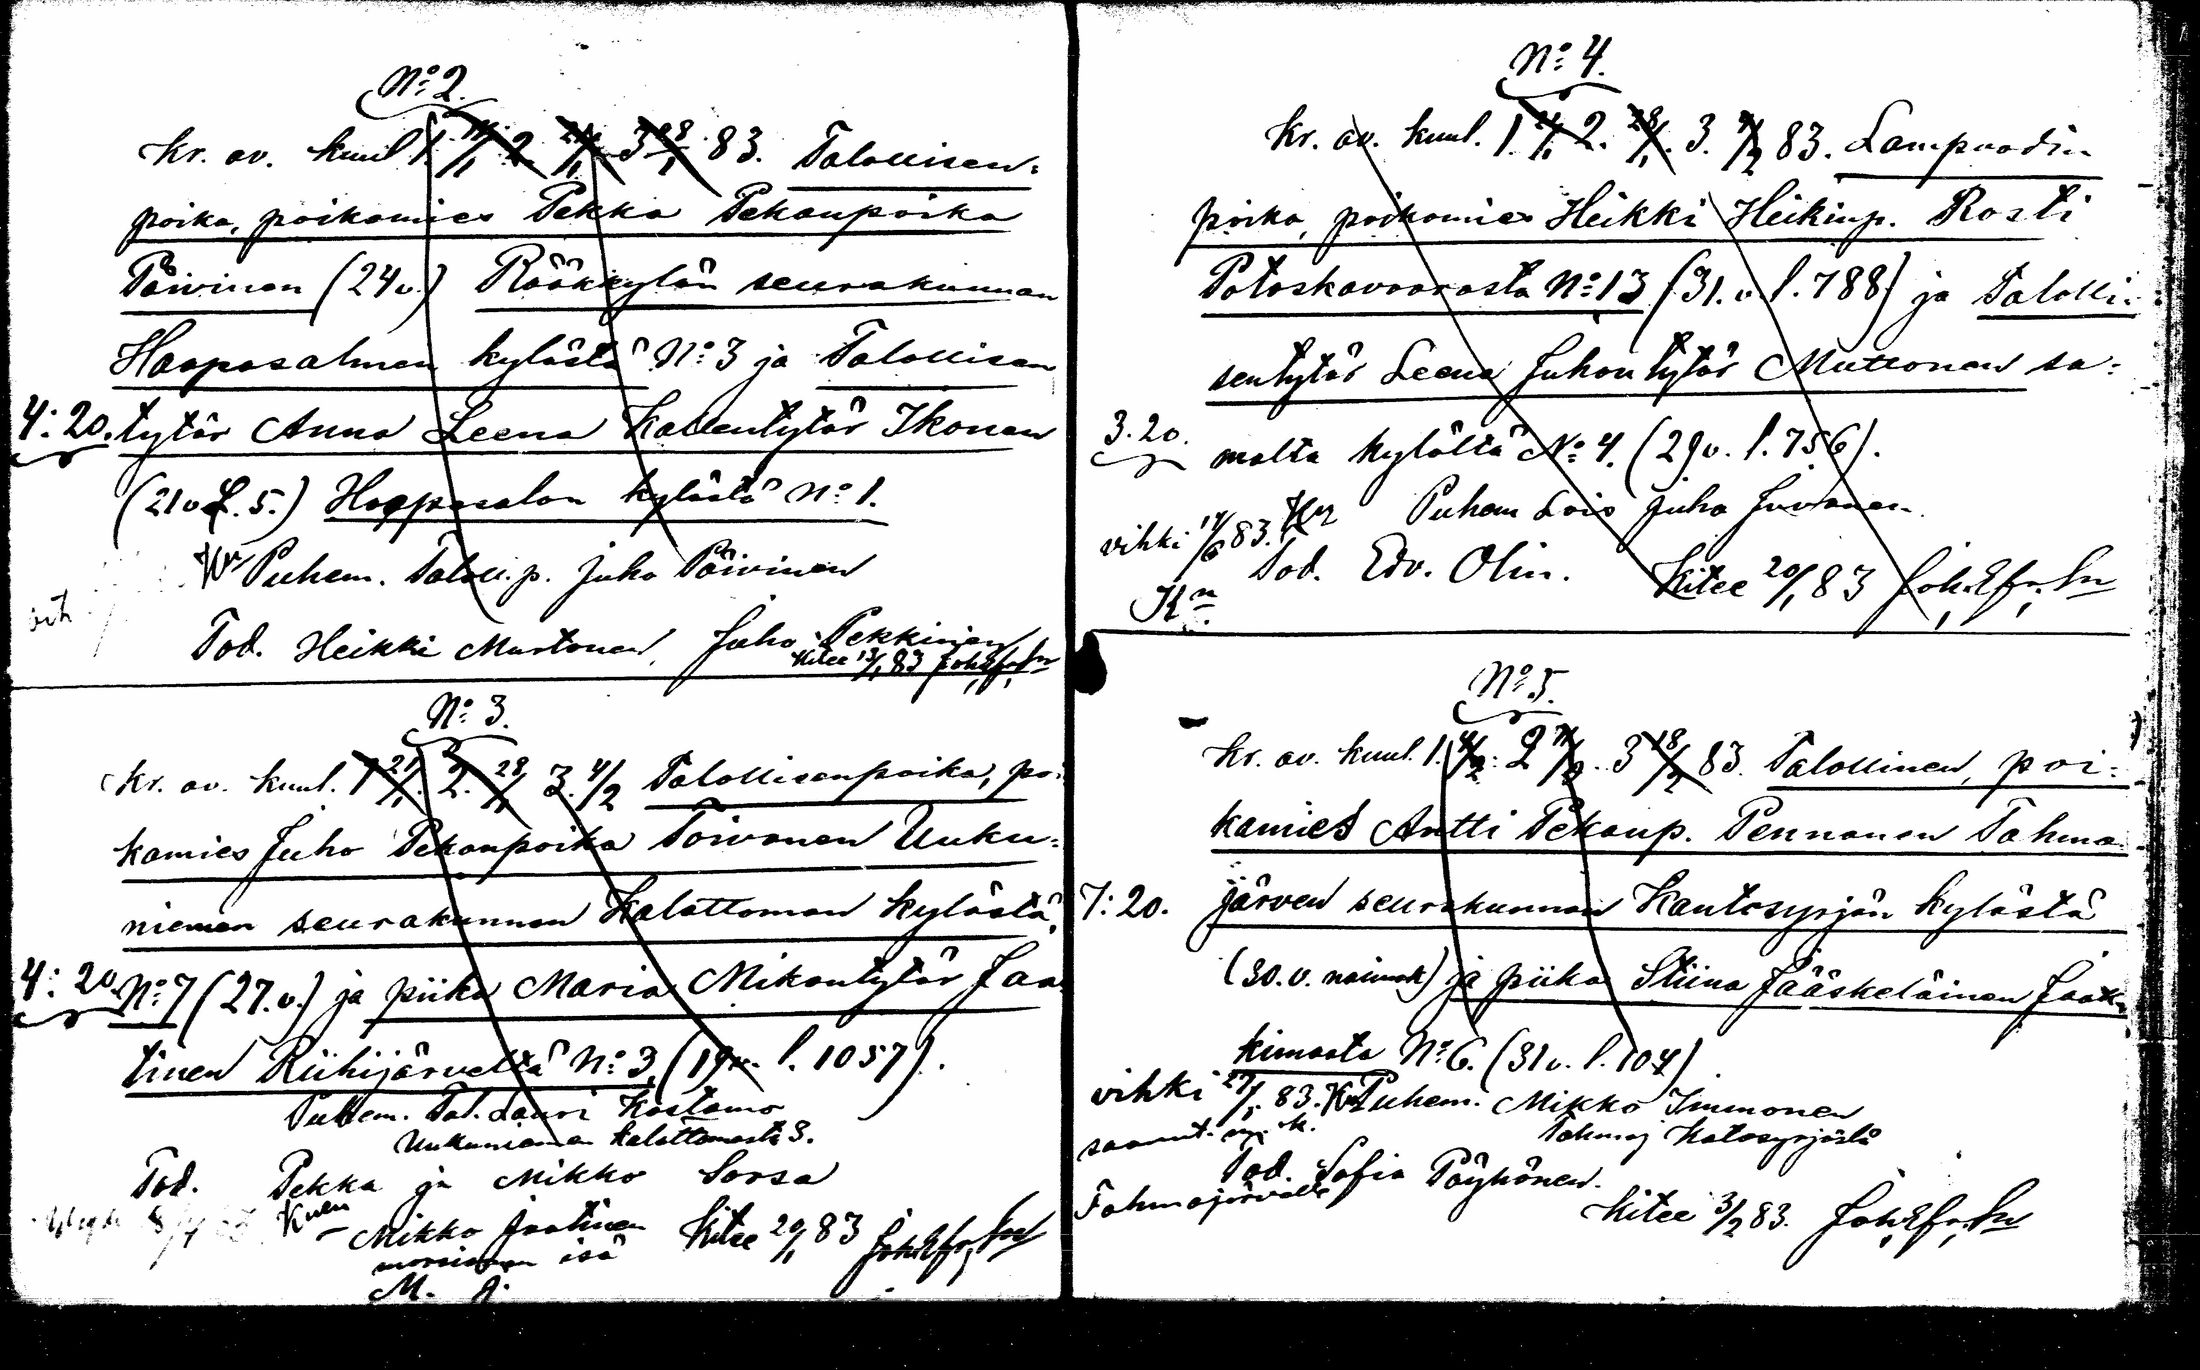 No: 2.
Kr. av. kuul 1. 14/1 2. 21/1 3 28/1 83. Talollisen-
poika, poikamies Pekka Pekanpoika
Päivinen (24 v.) Rääkkylän seurakunnan
Haapasalmen kylästä No: 3 ja Talollisen
4:20. tytär Anna Leena Kallentytär Ikonen
(21 v. l. 5.) Haapasalon kylästä No: 1.
Puhem. Taloll. p. Juho Päivinen
Tod. Heikki Murtonen, Juho Pekkinen
Kitee 13/1 83
No: 3.
Kr. av. kuul. 1 21/1. 2. 28/1 3. 4/2 Talollisenpoika, poi-
kamies Juho Pekanpoika Toivonen Uuku-
niemen seurakunnan Kalattoman kylästä,
4:20. No: 7 (27. v.) ja piika Maria Mikontytär Jaa-
tinen Riihijärveltä No: 3, (19 v. l. 1057).
Puhem. Tal. Lauri Kostamo
Uukuniemen Kalattomasta 3.
Tod. Pekka ja Mikko Sorsa
Mikko Jaatinen
morsiamen isä
Kitee 20/1 83
No: 4.
Kr. av. kuul. 1. 21/1 2. 28/1. 3. 4/2 83. Lampuodin
poika, poikamies Heikki Heikinp. Rosti
Potoskavaarasta No: 13 (31. v. l. 788) ja Talolli-
sentytär Leena Juhontytär Muttonen sa-
3.20. malta kylältä No: 4. (29 v. l. 756).
Puhem Lois Juho Juvonen.
vihki 17/6 83.
Tod. Edv. Olin. Kitee 20/1 83
No: 5.
Kr. av. kuul. 1. 4/2. 2 11/2. 3 18/2 83. Talollinen, poi-
kamies Antti Pekanp. Pennanen Tohma-
7:20. järven seurakunnan Kantosyrjän kylästä
(30. v. naimat) ja piika Stiina Jääskeläinen Jaak-
kimasta No: 6. (31 v. l. 104)
vihki 27/5 83. Puhem. Mikko Immonen
Tohmaj Katosyrjästä
Tod. Sofia Pöyhönen.
Tohmajärvelle
Kitee 3/2 83.